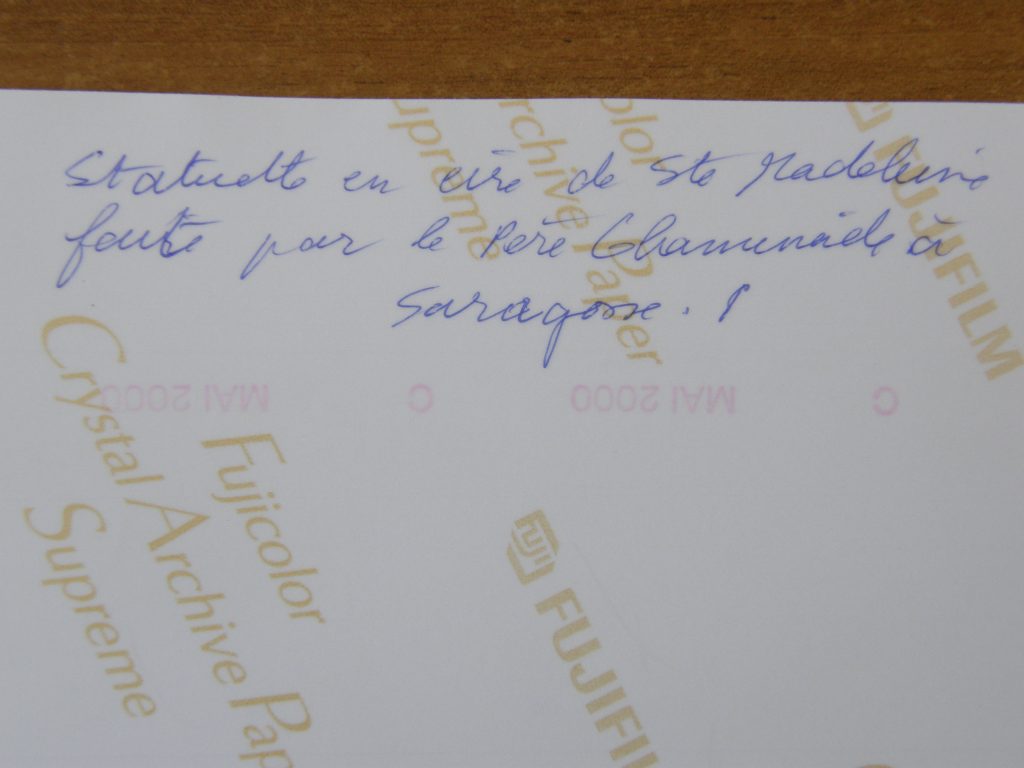 Statuette en cire de Ste Madeleine
faite par le Père Chaminade à
Saragosse.
Supreme
Archive Paper
color
FUJIFILM
MAI 2000 C MAI 2000 C
Fujicolor
Crystal Archive Pap
Supreme
FUJI
FUJIFIL